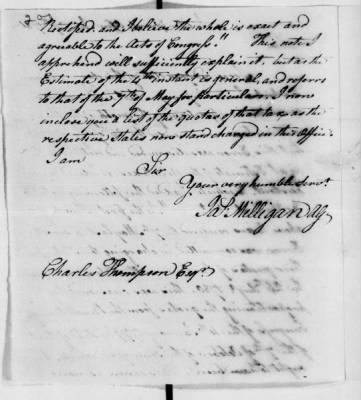 Rectified. and I believe the whole is exact and
agreeable to the Acts of Congress." This note I
apprehend will sufficiently explain it, but as the
Estimate of the 4th instant is general, and referrs
to that of the 7th of May for particulars. I now
inclose you a list of the quotas of that tax, as the
respective States now stand charged in this Office.
I am
Sir
Your very humble Servt.
Jas. Milligan
Charles Thompson Esqr.